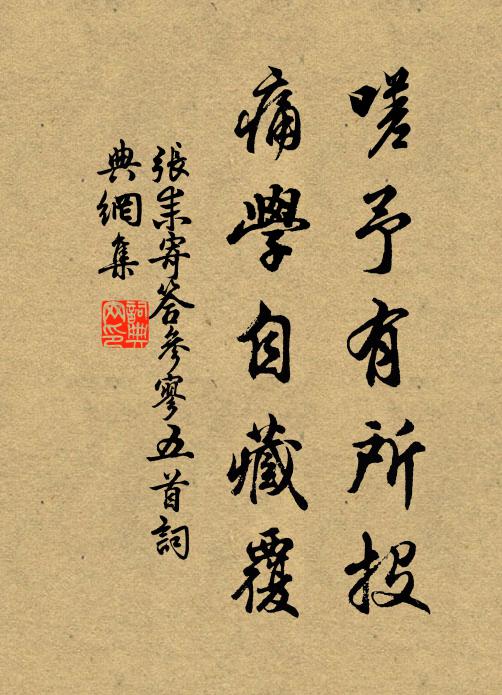 嗟予有所投
痛學自藏覆
張耒寄答參寥五首詞
典網集
詞典
網印